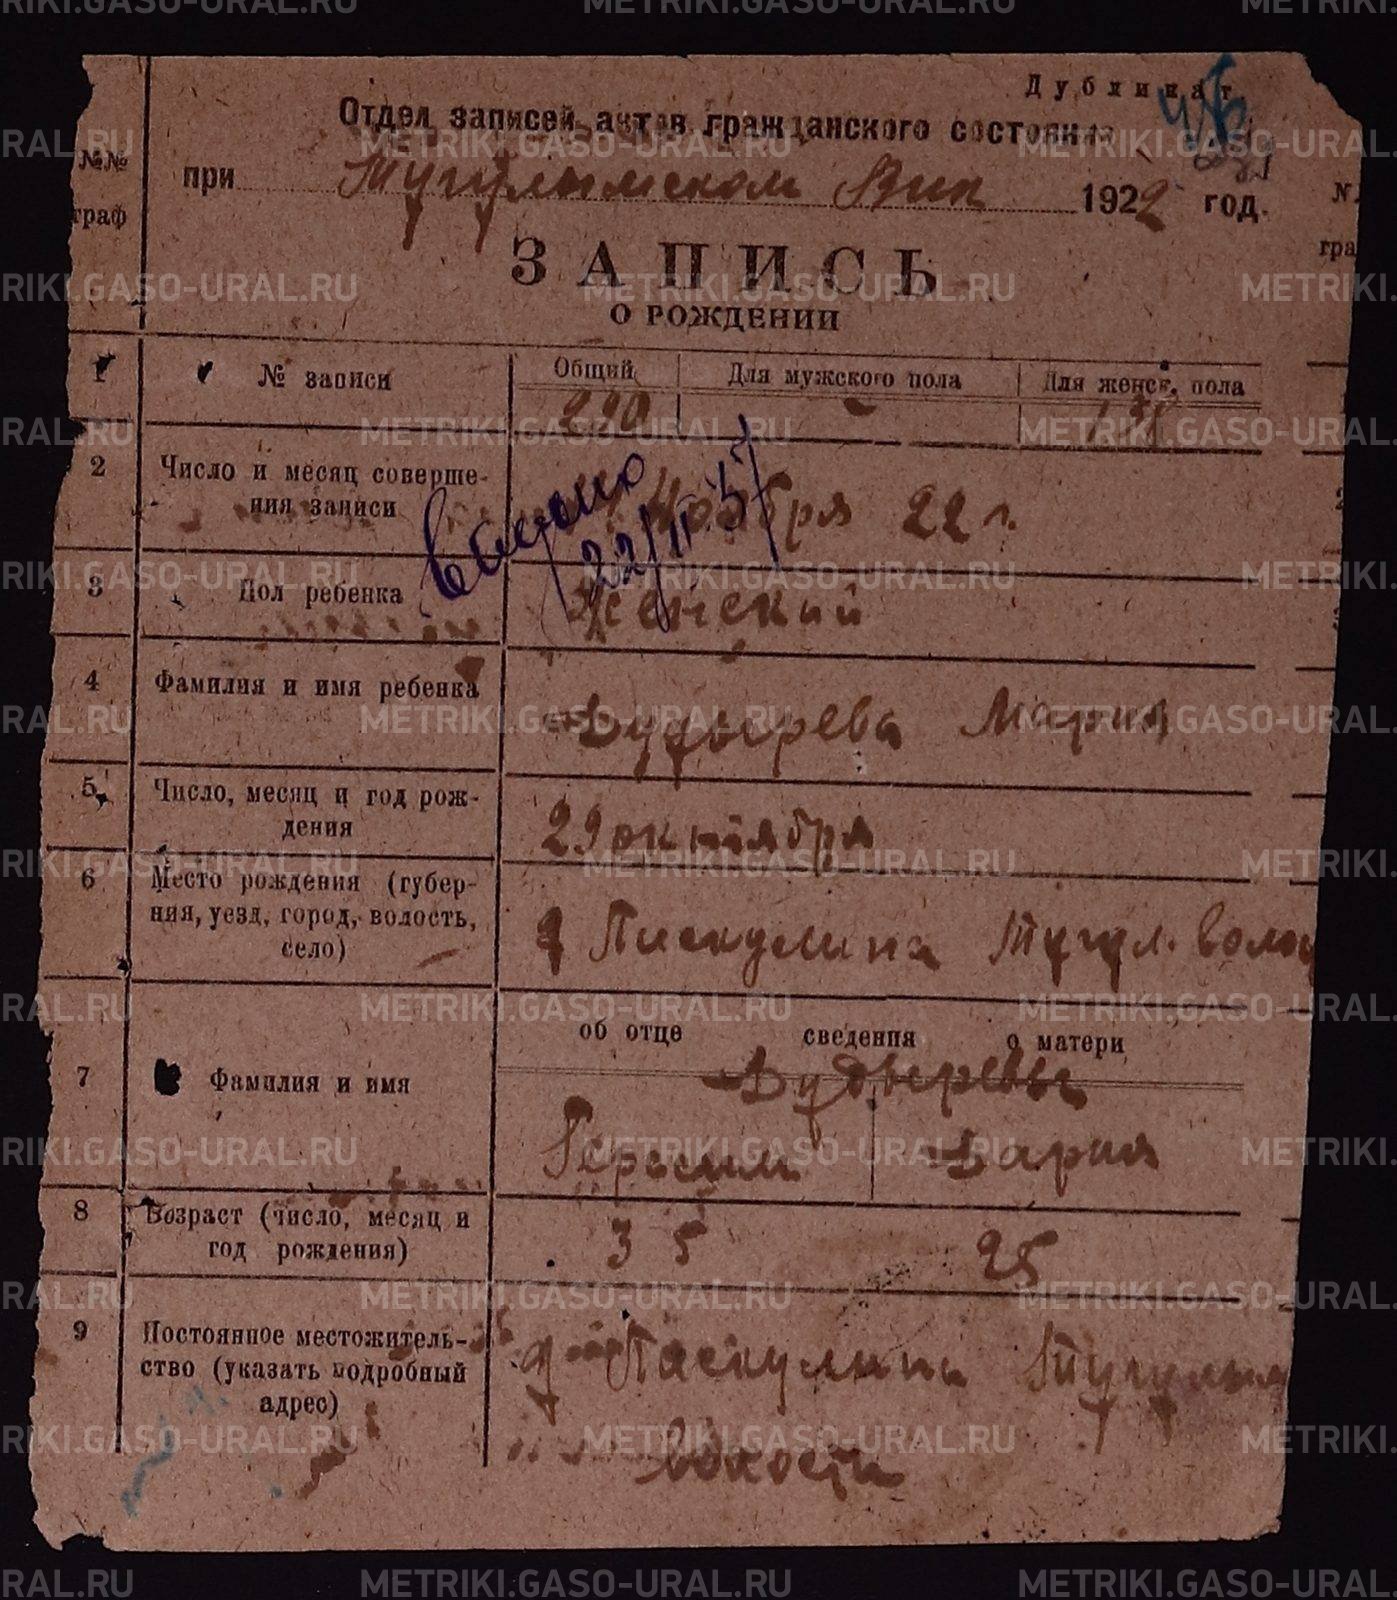 Дубликат
Отдел записей актов гражданского состояния
№№ граф
при Тугулымском Вик 1922 год.
ЗАПИСЬ
О РОЖДЕНИИ
1 № записи Общий Для мужского пола Для женск. пола
220 -
2 Число и месяц соверше-
ния записи Ноября 22 г.
выдано
22/II 57
3 Пол ребенка Женский
4 Фамилия и имя ребенка Дудырева Мария
5 Число, месяц и год рож-
дения 29 октября
6 Место рождения (губер-
ния, уезд, город, волость,
село) д Пискулина Тугул. воло
об отце сведения о матери
7 Фамилия и имя Дудыревы
Герасим Дария
8 Возраст (число, месяц и
год рождения) 35 25
9 Постоянное местожитель-
ство (указать подробный
адрес) д Паскулина Тугулым
волости
METRIKI.GASO-URAL.RU